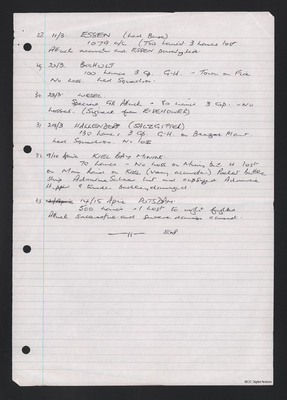 28 11/3. ESSEN (Last Raid)
1079 a/c (750 Lancs) 3 lancs lost
Attack accurate and ESSEN paralysed.
BOCHOLT
100 lancs 3 Gp. G-H. - Town on Fire
No loss. Led Squadron.
30 23/3. WESEL
Special GH Attack - 80 lancs 3 Gp. - No
losses. (Signal from EISENHOWER)
31 29/3 HALLENDORF (SALZGITTER)
130 lancs 3 Gp. G-H on Benzol Plant
Led Squadron. No loss
32 9/10 April KIEL BAY MINING
70 lancs - No loss on Mining but 4 lost
on Main Force on Kiel (very accurate) Pocket battle
ship Admiral Scheer hit and capsized Admiral
Hipper & Emden badly damaged
33 14/15 April POTSDAM
500 lancs - 1 lost to night fighter
Attack successful and severe damage caused.
END